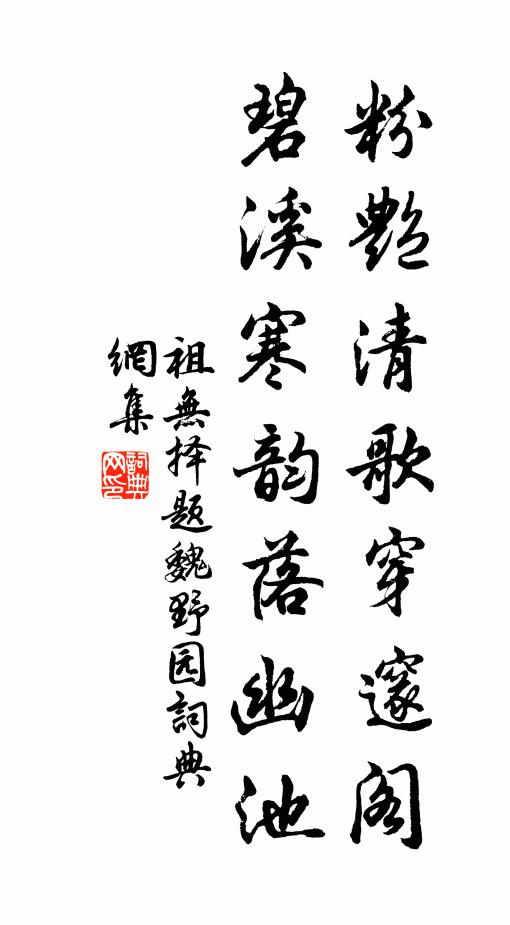 粉艳清歌穿邃阁
碧溪寒韵落幽池
祖無择题魏野园詞典
網集
詞典网印